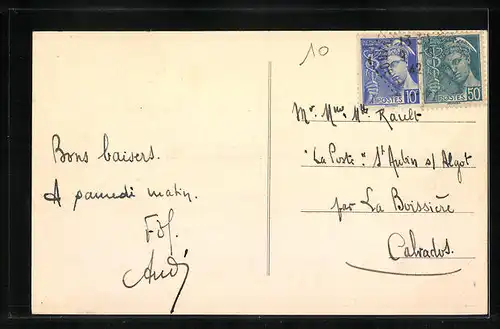 10
POSTES 10
POSTES 50
Bons baisers.
A samedi matin.
André
Mr. Mme. Mlle Rault
"La Poste" St Aubin s/ Algot
par La Boissière
Calvados.